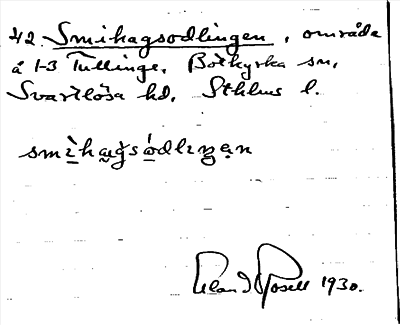 42. Smihagsodlingen, område
å 1-3 Tullinge. Botkyrka sn,
Svartlösa hd. Sthlms l.
smi̠hag̀sódliŋən
Eland Rosell 1930.